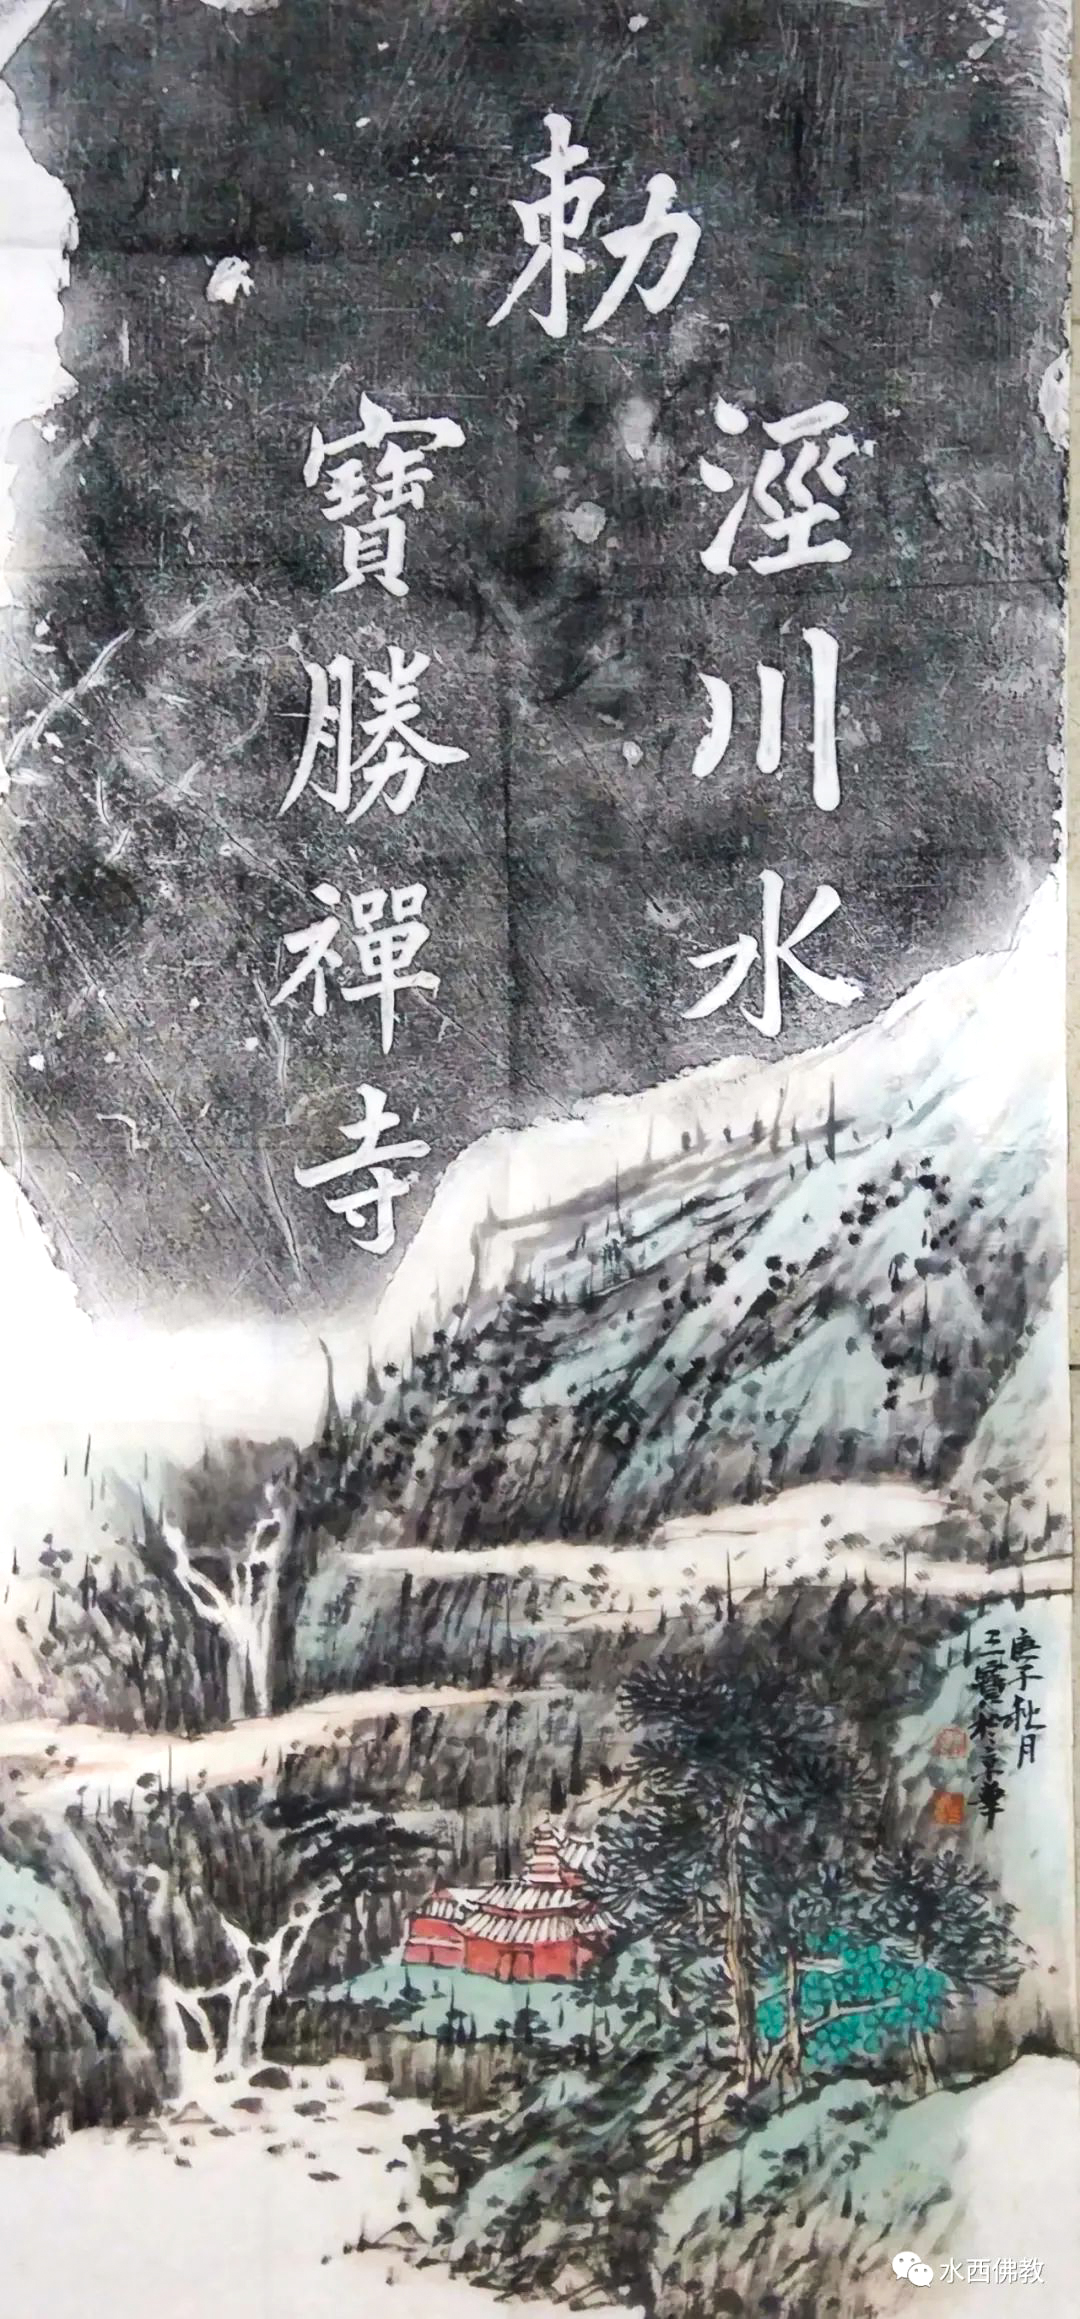 勅
涇川水
寶勝禪寺
庚子秋月
三寶於京華
水西佛教